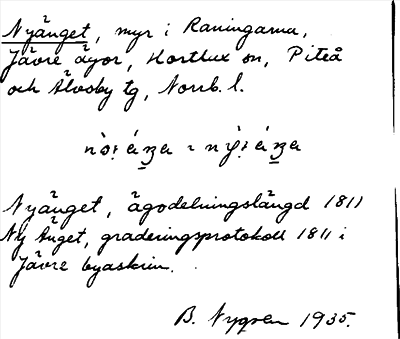 Nyänget, myr i Raningarna,
Jävre ägor, Hortlax sn, Piteå
och Älvsby tg, Norrb. l.
Nyänget, ägodelningslängd 1811
Ny Änget, graderingsprotokoll 1811 i
Jävre byaskrin.
B. Nygren 1935.